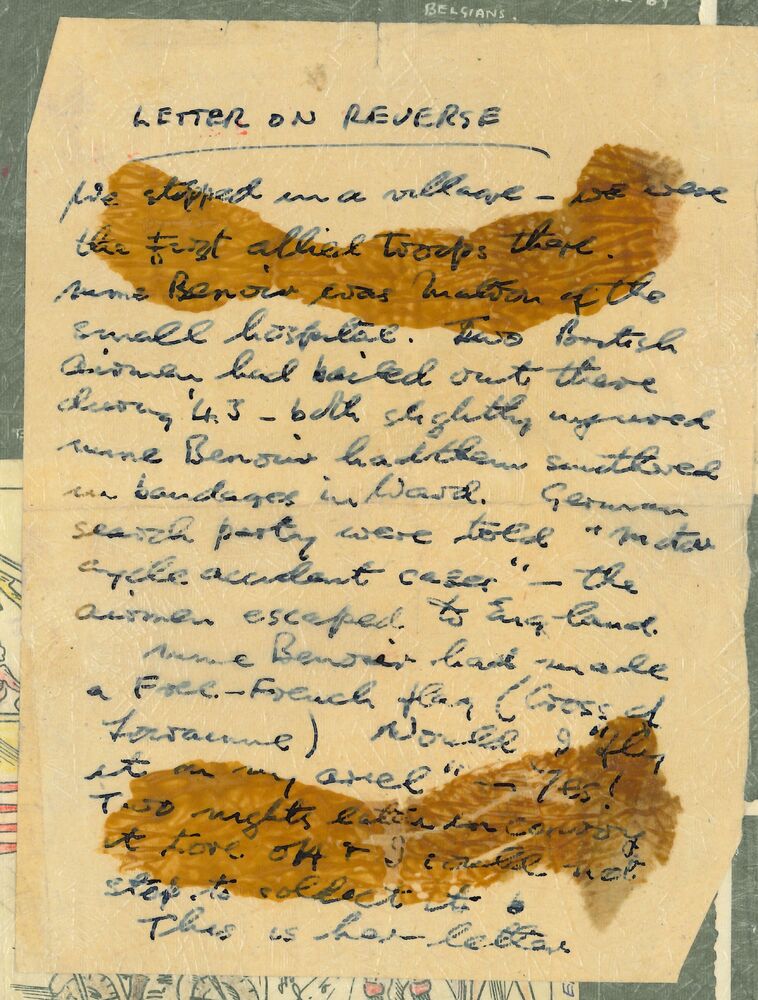 BELGIANS.
LETTER ON REVERSE
We stopped in a village – we were
the first allied troops there.
Mme Benoir was Matron of the
small hospital. Two British
airmen had bailed out there
during '43 – both slightly injured
Mme Benoir had them smothered
in bandages in Ward. German
search party were told "Motor
cycle accident cases" – the
airmen escaped to England.
Mme Benoir had made
a Free-French flag (Cross of
Lorraine) Would I "fly
it on my ariel" – "Yes!
Two nights later in convoy
it tore off & I could not
stop to collect it
This is her letter